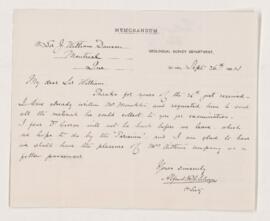 MEMORANDUM
GEOLOGICAL SURVEY DEPARTMENT,
Sir J William Dawson
Montreal
Sept 26th
My dear Sir William
Thanks for yours of the 26th just received
I have already written Mr and requested him to send
all the material he could collect to you for examination
I fear Dr George will not be back before we leave, which
we hope to do by the "Parisian" and I am glad to hear
we shall have the pleasure of Mrs company as a
fellow passenger
Yours sincerely
Alfred